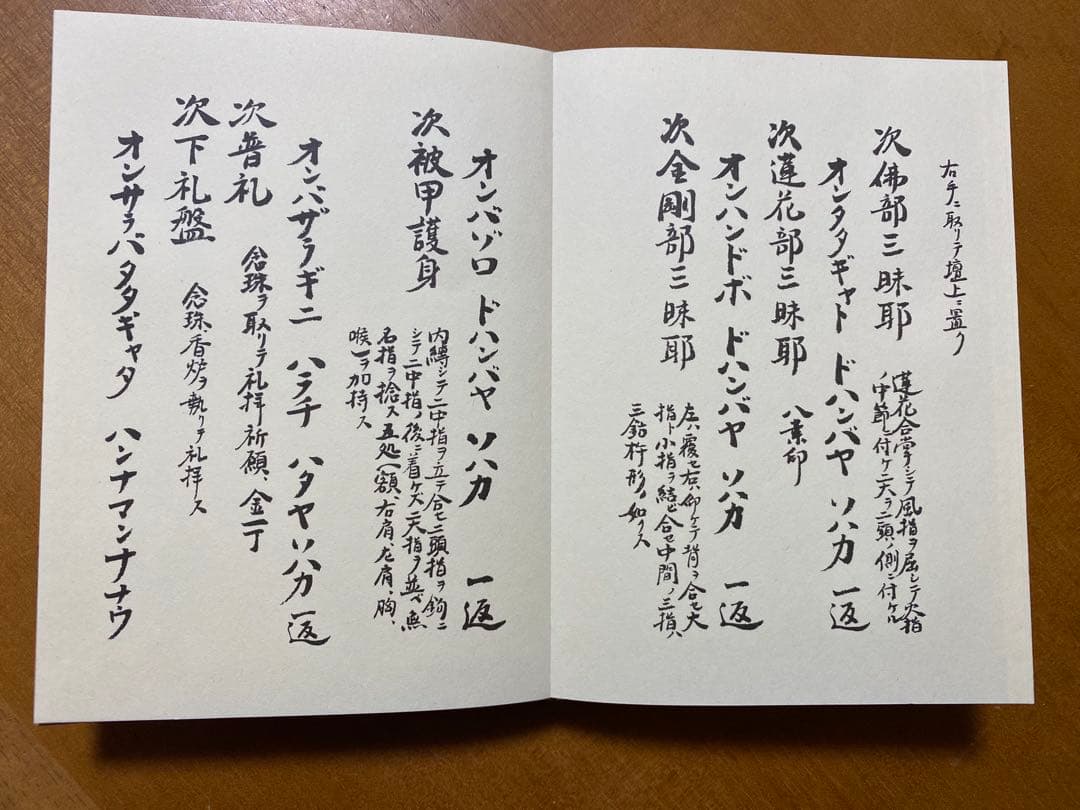 右手ニ取リテ壇上ニ置ク
次佛部三昧耶
蓮花合掌シテ風指ヲ屈シテ火指
ノ中節ニ付ケ二大ヲ二頭ノ側ニ付ケル
オンタタギャト ドハンバヤ ソハカ 一返
次蓮花部三昧耶 八葉印
オンハンドボ ドハンバヤ ソハカ 一返
次金剛部三昧耶
左ハ覆セ右ハ仰ケテ背ヲ合セ大
指ト小指ヲ結ビ合セ中間ノ三指ハ
三鈷杵形ノ如クス
オンバゾロ ドハンバヤ ソハカ 一返
次被甲護身
内縛シテ二中指ヲ立テ合セ二頭指ヲ鉤ニ
シテ二中指ノ後ニ着ケズ二大指ヲ並ベ無
名指ヲ捻ス五処(額、右肩、左肩、胸、
喉)ヲ加持ス
オンバザラギニ ハラチ ハタヤ ソハカ 一返
次普礼 念珠ヲ取リテ礼拝祈願、金一丁
次下礼盤 念珠香炉ヲ執リテ礼拝ス
オンサラバタタギャタ ハンナマンナナウ